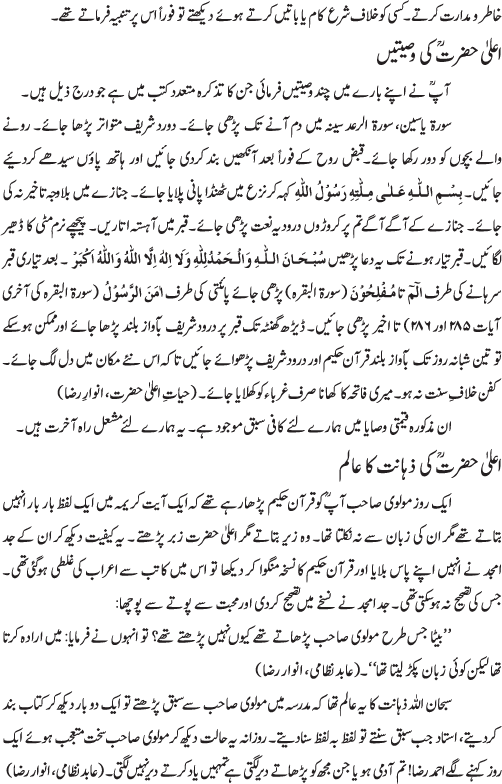 خاطر و مدارت کرتے۔ کسی کو خلاف شرع کام یا باتیں کرتے ہوئے دیکھتے تو فوراً اس پر تنبیہ فرماتے تھے۔
اعلیٰ حضرتؒ کی وصیتیں
آپؒ نے اپنے بارے میں چند وصیتیں فرمائی جن کا تذکرہ متعدد کتب میں ہے جو درج ذیل ہیں۔
سورۃ یاسین، سورۃ الرعد سینہ میں دم آنے تک پڑھی جائے۔ دورد شریف متواتر پڑھا جائے۔ رونے
والے بچوں کو دور رکھا جائے۔ قبض روح کے فوراً بعد آنکھیں بند کردی جائیں اور ہاتھ پاؤں سیدھے کردیئے
جائیں۔ بِسْمِ اللّٰہِ عَلٰی مِلَّتِہِ رَسُوْلُ اللّٰہِ کہہ کر نزع میں ٹھنڈا پانی پلایا جائے۔ جنازے میں بلاوجہ تاخیر نہ کی
جائے۔ جنازے کے آگے آگے تم پر کروڑوں درود یہ نعت پڑھی جائے۔ قبر میں آہستہ اتاریں۔ پیچھے نرم مٹی کا ڈھیر
لگائیں۔ قبر تیار ہونے تک یہ دعا پڑھیں سُبْحَانَ اللّٰہِ وَالْحَمْدُلِلّٰہِ وَلَا اِلٰہَ اِلَّا اللّٰہُ وَاللّٰہُ اَکْبَرْ ۔ بعد تیاری قبر
سرہانے کی طرف الٓمٓ تا مُفْلِحُوْنَ (سورۃ البقرہ) پڑھی جائے پائنتی کی طرف اٰمَنَ الرَّسُوْلُ (سورۃ البقرہ کی آخری
آیات ۲۸۵ اور ۲۸۶) تا اخیر پڑھی جائیں۔ ڈیڑھ گھنٹہ تک قبر پر درود شریف بآواز بلند پڑھا جائے اور ممکن ہوسکے
تو تین شبانہ روز تک بآواز بلند قرآن حکیم اور درود شریف پڑھوائے جائیں تا کہ اس نئے مکان میں دل لگ جائے۔
کفن خلاف سنت نہ ہو۔ میری فاتحہ کا کھانا صرف غرباء کو کھلایا جائے۔ (حیاتِ اعلیٰ حضرت، انوارِ رضا)
ان مذکورہ قیمتی وصایا میں ہمارے لئے کافی سبق موجود ہے۔ یہ ہمارے لئے مشعل راہ آخرت ہیں۔
اعلیٰ حضرتؒ کی ذہانت کا عالم
ایک روز مولوی صاحب آپؒ کو قرآن حکیم پڑھا رہے تھے کہ ایک آیت کریمہ میں ایک لفظ بار بار انہیں
بتاتے تھے مگر ان کی زبان سے نہ نکلتا تھا۔ وہ زیر بتاتے مگر اعلیٰ حضرت زبر پڑھتے۔ یہ کیفیت دیکھ کر ان کے جد
امجد نے انہیں اپنے پاس بلایا اور قرآن حکیم کا نسخہ منگوا کر دیکھا تو اس میں کاتب سے اعراب کی غلطی ہوگئی تھی۔
جس کی تصحیح نہ ہوسکتی تھی۔ جد امجد نے نسخے میں تصحیح کردی اور محبت سے پوتے سے پوچھا:
’’بیٹا جس طرح مولوی صاحب پڑھاتے تھے کیوں نہیں پڑھتے تھے؟ تو انہوں نے فرمایا: میں ارادہ کرتا
تھا لیکن کوئی زبان پکڑ لیتا تھا‘‘۔ (عابد نظامی، انوار رضا)
سبحان اللہ ذہانت کا یہ عالم تھا کہ مدرسہ میں مولوی صاحب سے سبق پڑھتے تو ایک دو بار دیکھ کر کتاب بند
کردیتے، استاد جب سبق سنتے تو لفظ بہ لفظ سنا دیتے۔ روزانہ یہ حالت دیکھ کر مولوی صاحب سخت متعجب ہوئے ایک
روز کہنے لگے احمد رضا! تم آدمی ہو یا جن مجھ کو پڑھاتے دیر لگتی ہے تمہیں یاد کرتے دیر نہیں لگتی۔ (عابد نظامی، انوار رضا)